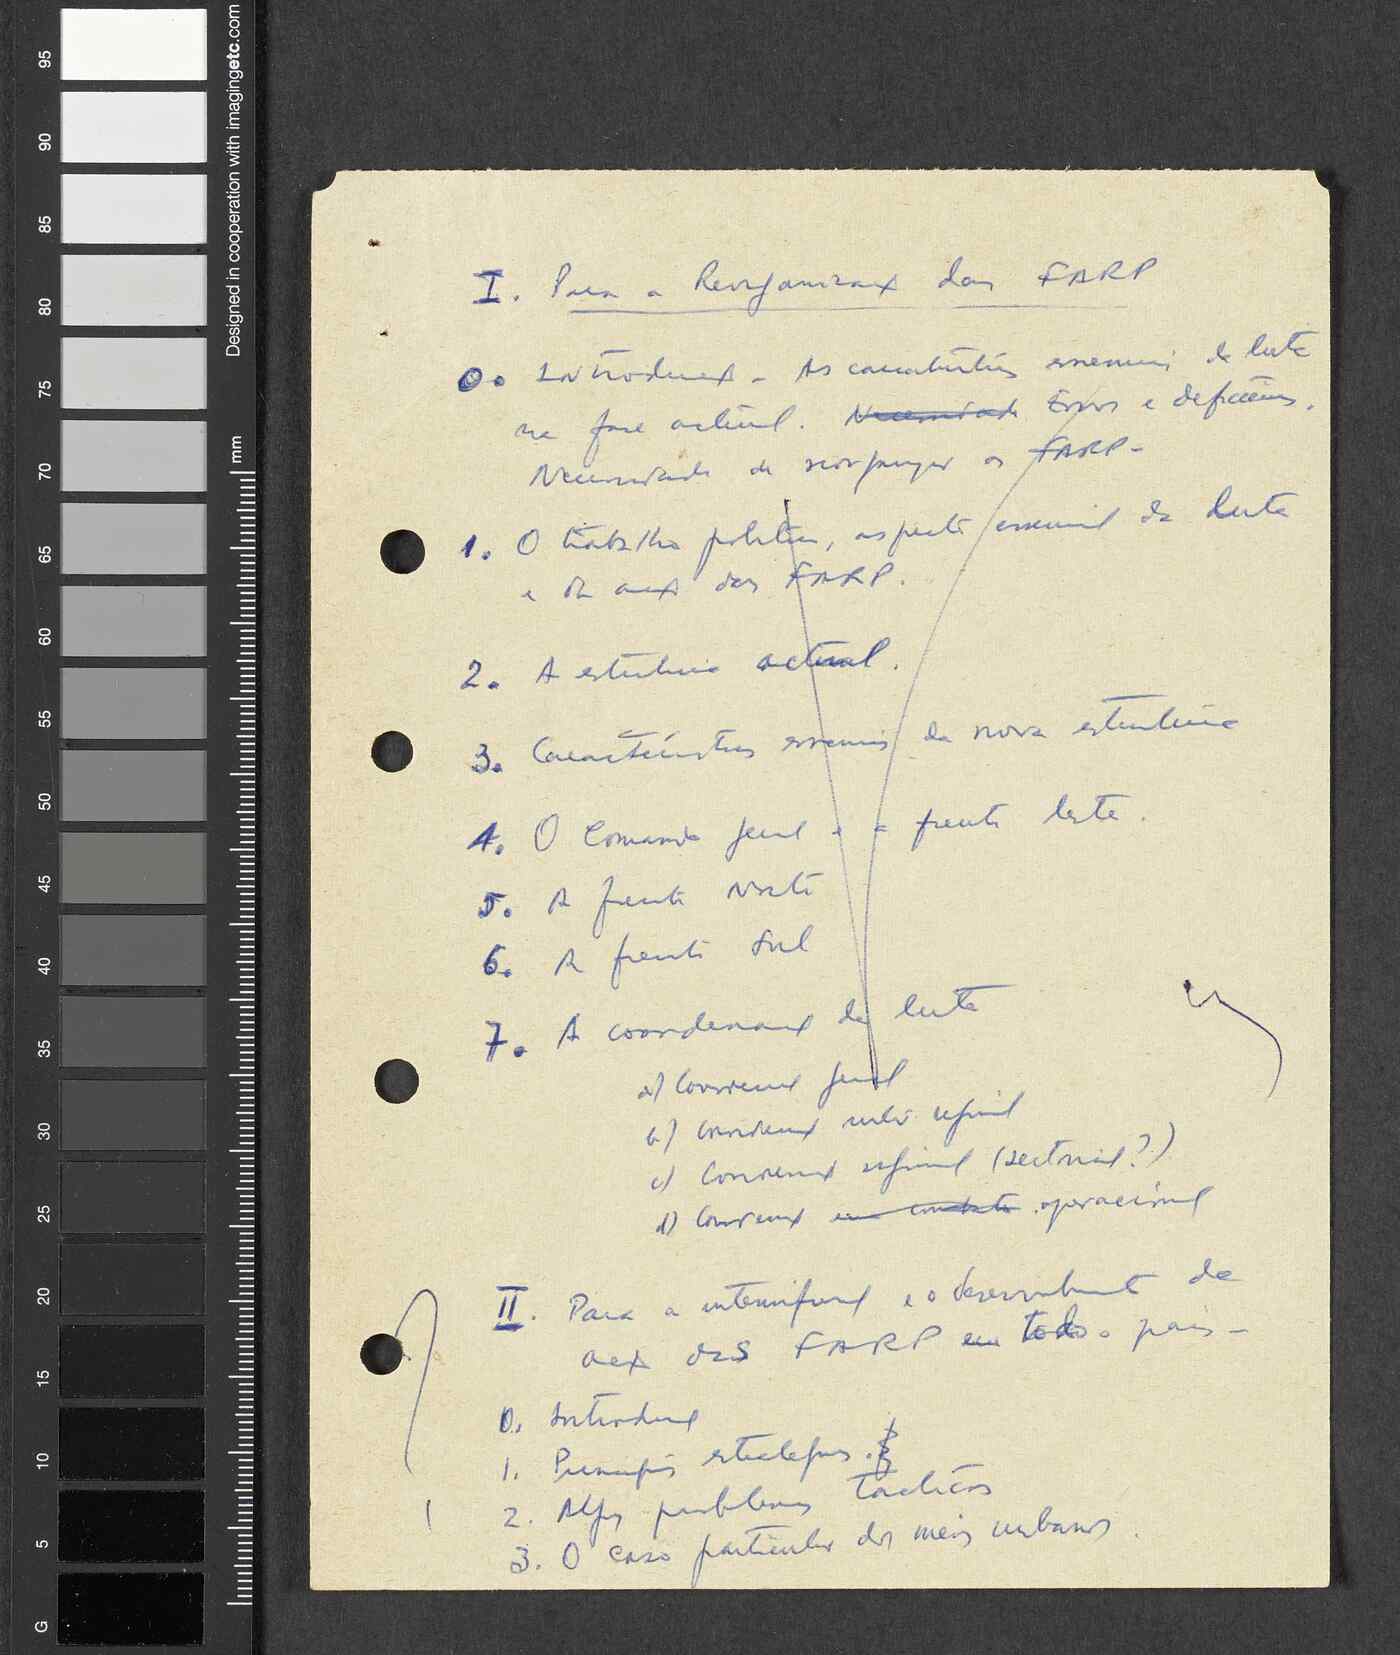 Designed in cooperation with imagingetc.com
mm
95
90
85
80
75
70
65
60
55
50
45
40
35
30
25
20
15
10
5
G
I. Para a Reorganizaç das FARP
0. Introduç - As características essenciais da luta
na fase actual. Necessidade Erros e deficiências.
Necessidade de reorganizar as FARP -
1. O trabalho político, aspecto essencial da luta
e da acç das FARP.
2. A estrutura actual.
3. Características essenciais da nova estrutura
4. O Comando geral e a frente leste.
5. A frente Norte
6. A frente Sul
7. A coordenaç da luta
a) Coordenaç geral
b) Coordenaç inter regional
c) Coordenaç regional (sectorial?)
d) Coordenaç em combate operacional
II. Para a intensificaç e o desenvolvimento da
acç das FARP em todo o país -
0. Introduç
1. Princípios estratégicos.
2. Alguns problemas tácticos
3. O caso particular dos meios urbanos.